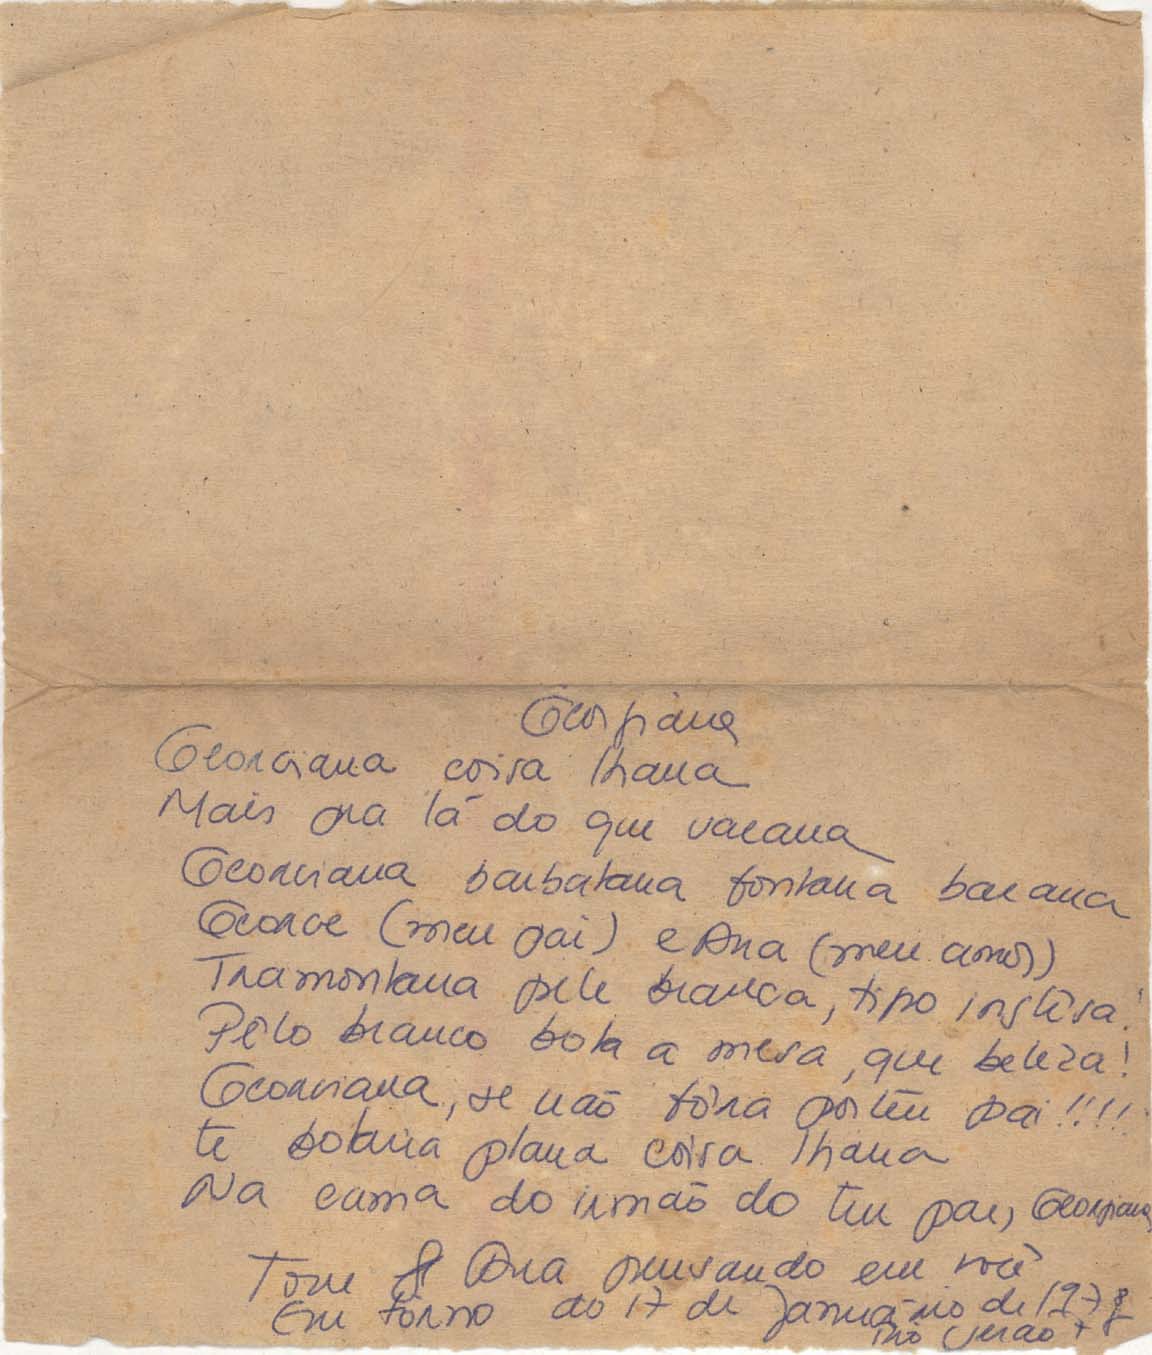 Georgiana
Georgiana coisa lhana
Mais pra lá do que vacana
Georgiana barbatana fontana bacana
George (meu pai) e Ana (meu amor)
Tramontana pele branca, tipo inglêsa!
Pêlo branco bota a mesa, que beleza!
Georgiana, se não fôra por teu pai!!!!
te botaria plana coisa lhana
Na cama do irmão do teu pae, Georgiana
Tom Ana pensando em você
Em torno do 17 de Januário de 1978
Rio Verão